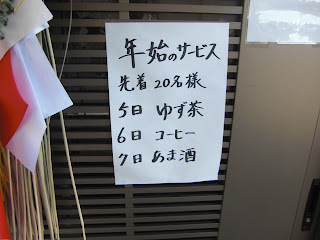 年始のサービス
先着20名様
5日 ゆず茶
6日 コーヒー
7日 あま酒